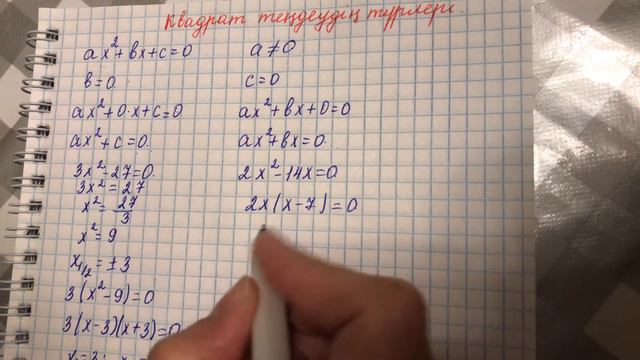 Квадрат теңдеудің түрлері.
ax²+bx+c=0
b=0
ax²+0·x+c=0
ax²+c=0.
3x²-27=0.
3x²=27
x²=27/3
x²=9
x₁/₂=±3
3(x²-9)=0
3(x-3)(x+3)=0
a≠0
c=0
ax²+bx+0=0
ax²+bx=0.
2x²-14x=0
2x(x-7)=0